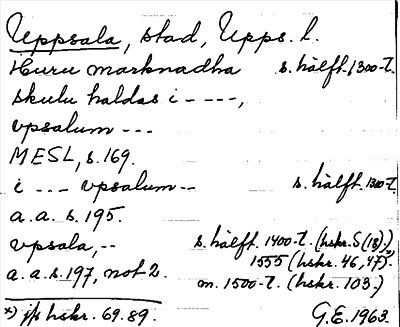 Uppsala, stad, Upps. l.
Huru marknadha s. hälft. 1300-t.
skulu haldas i ----,
vpsalum ---
MESL, s. 169.
i --- vpsalum -- s. hälft. 1300-t.
a.a. s. 195.
vpsala, -- s. hälft. 1400-t. (hskr. S (18),)
1555 (hskr. 46, 47).x)
a.a. s. 197, not 2. m. 1500-t. (hskr. 103.)
x) jfr hskr. 69. 89. G.E. 1963.